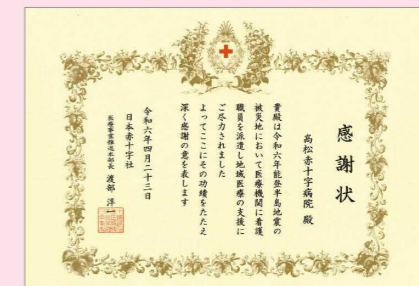 感謝状
高松赤十字病院 殿
貴殿は令和六年能登半島地震の
被災地において医療機関に看護
職員を派遣し地域医療の支援に
ご尽力されました
よってここにその功績をたたえ
深く感謝の意を表します
令和六年四月二十三日
日本赤十字社
医療事業推進本部長 渡部 洋一